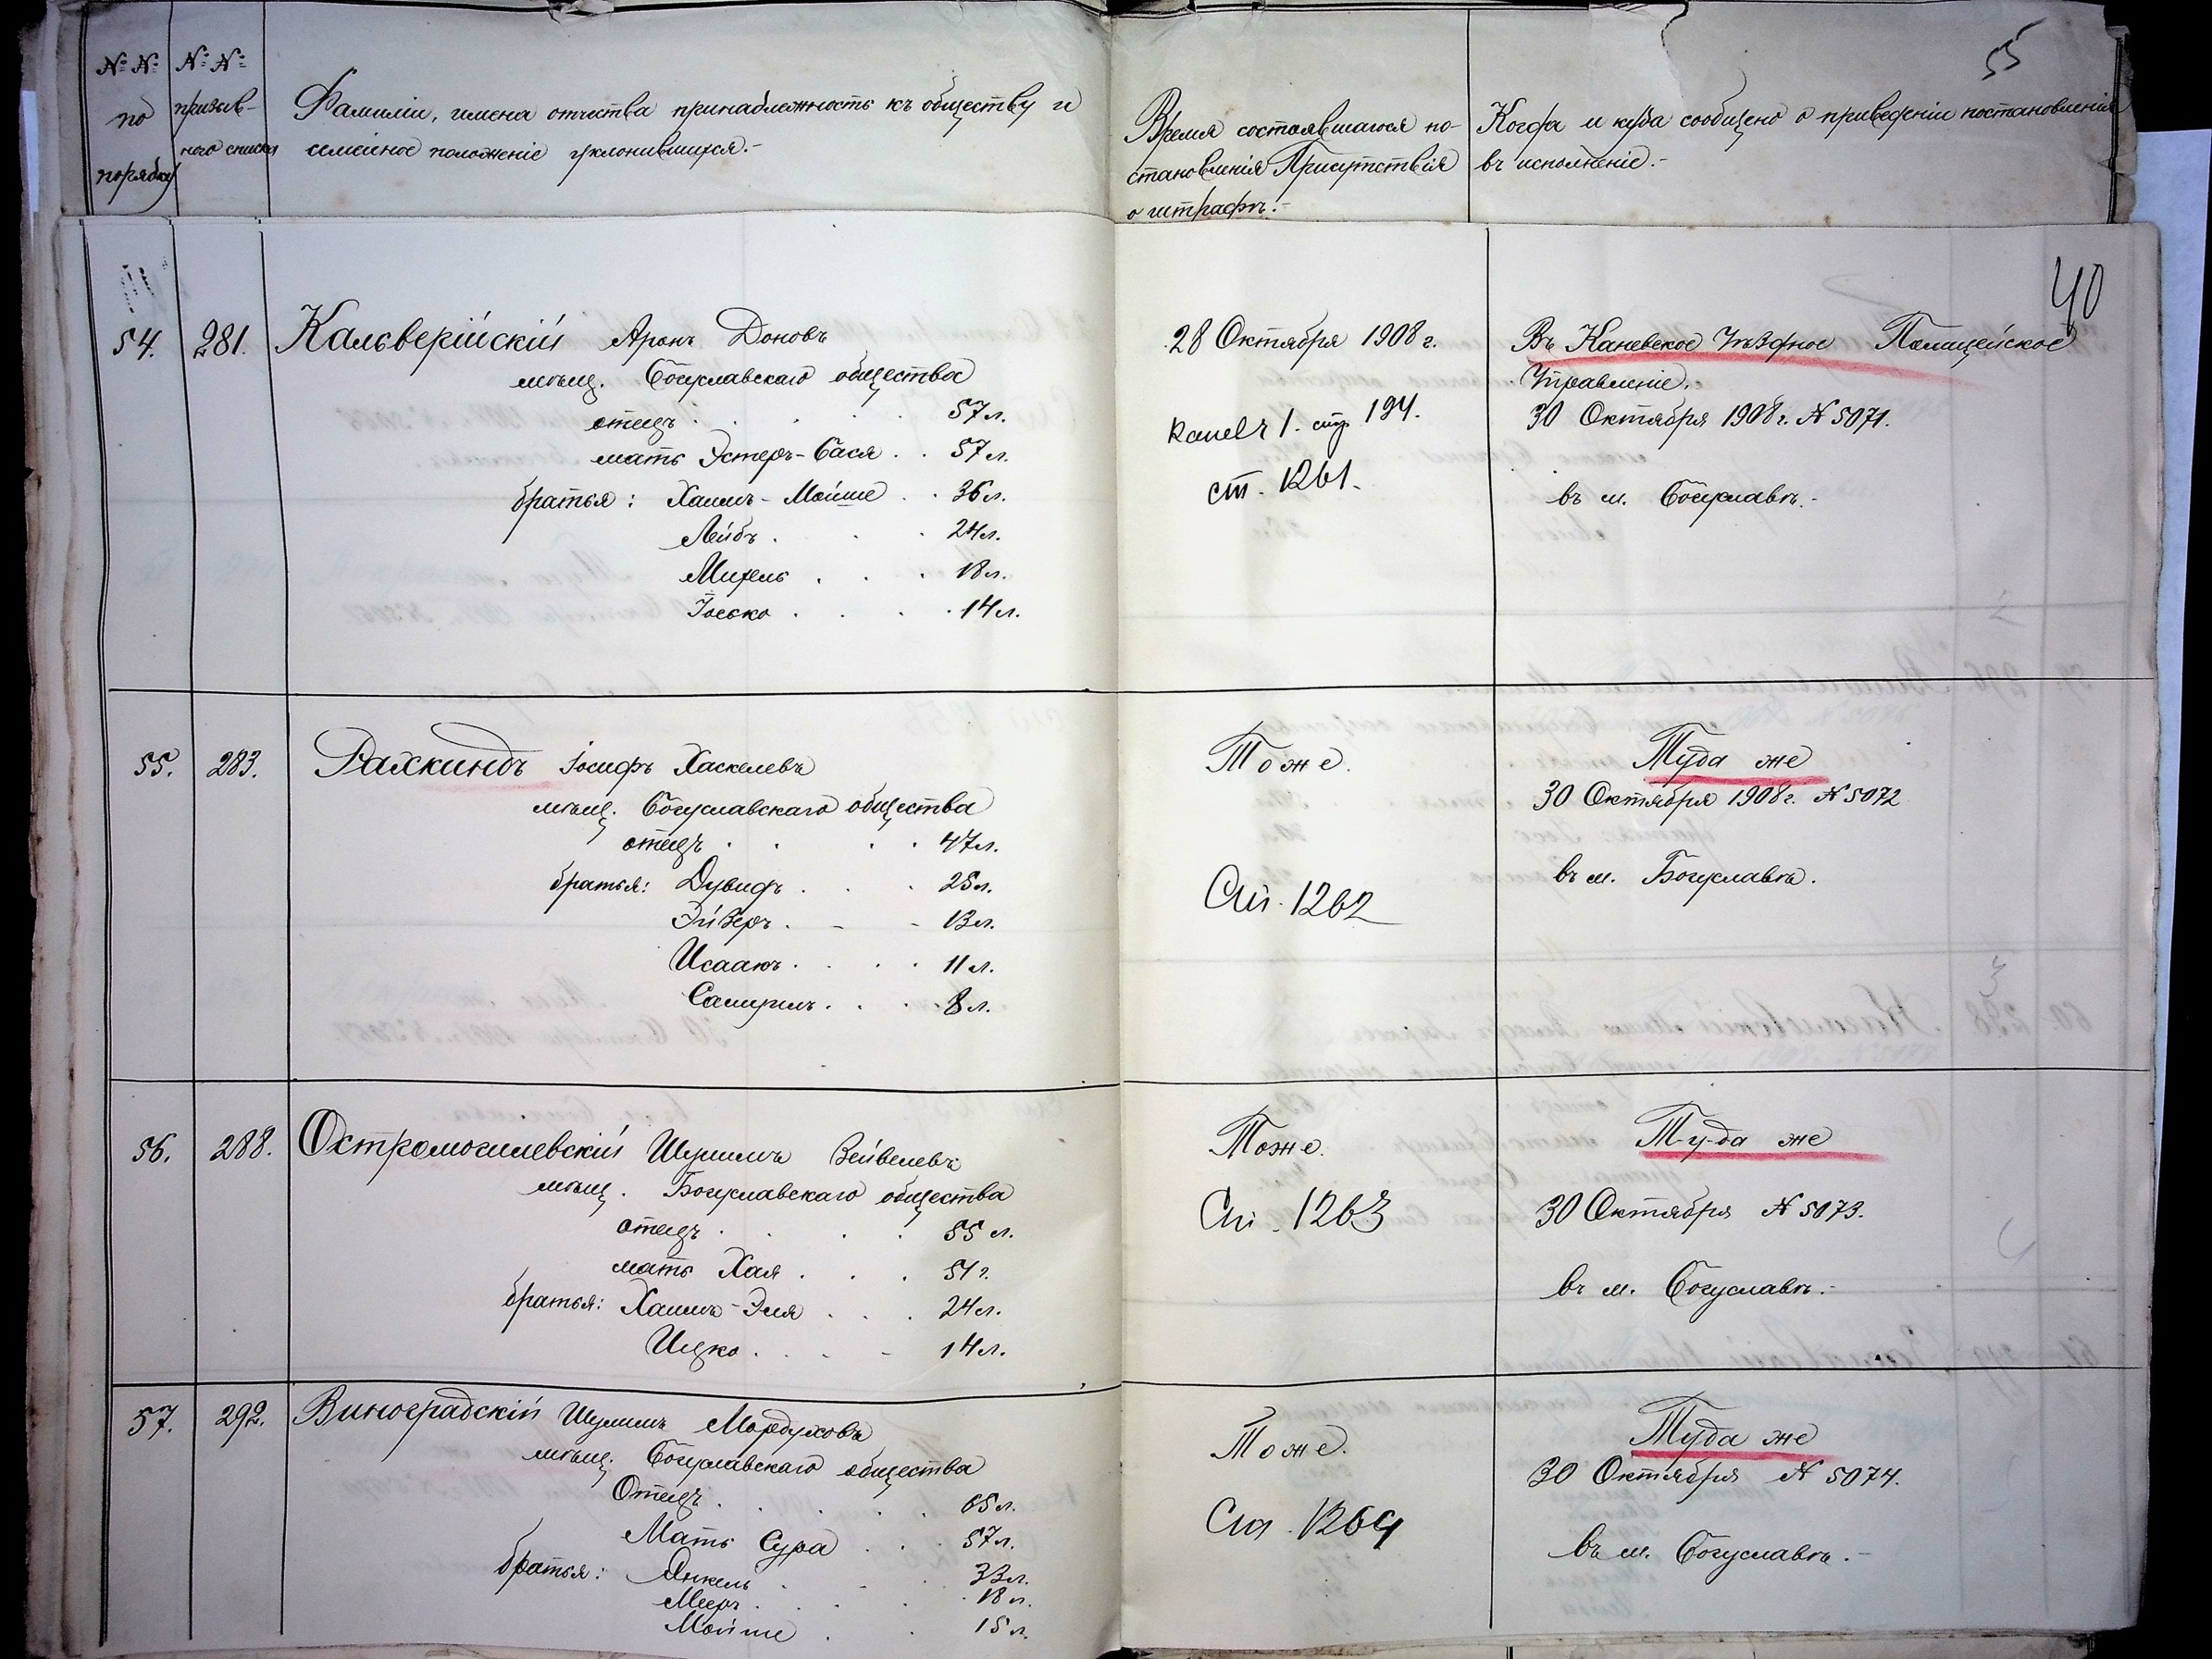 №№ по порядку
№№ призыв-
ного списка
Фамилии, имена отчества принадлежность къ обществу и
семейное положеніе уклонившихся.-
Время состоявшагося по-
становленія Присутствія
о штрафѣ.-
Когда и куда сообщено о приведеніи постановленія
въ исполненіе.-
55
40
54. 281. Кальверійскій Аронъ Доновъ
мѣщ. Богуславскаго общества
отецъ 57 л.
мать Эстеръ-Бася 57 л.
братья: Хаимъ-Мойше 36 л.
Лейбъ 24 л.
Михель 18 л.
Іосько 14 л.
28 Октября 1908 г.
Каневъ 1. стр. 194.
ст. 1261.
Въ Каневское Уѣздное Полицейское
Управленіе.
30 Октября 1908 г. № 5071.
въ м. Богуславѣ.-
55. 283. Рахкиндъ Іосифъ Хаскелевъ
мѣщ. Богуславскаго общества
отецъ 47 л.
братья: Дувидъ 25 л.
Эйзеръ 13 л.
Исаакъ 11 л.
Самуилъ 8 л.
Тоже.
Ст. 1262
Туда же
30 Октября 1908 г. № 5072
въ м. Богуславѣ.
56. 288. Остромогилевскій Шулимъ Зейвелевъ
мѣщ. Богуславскаго общества
отецъ 55 л.
мать Хая 51 г.
братья: Хаимъ-Эля 24 л.
Ицко 14 л.
Тоже.
Ст. 1263
Туда же
30 Октября № 5073.
въ м. Богуславѣ.-
57. 292. Виноградскій Шулимъ Мордуховъ
мѣщ. Богуславскаго общества
Отецъ 65 л.
Мать Сура 57 л.
братья: Янкель 33 л.
Мееръ 18 л.
Мойше 15 л.
Тоже.
Ст. 1264
Туда же
30 Октября № 5074.
въ м. Богуславѣ.-